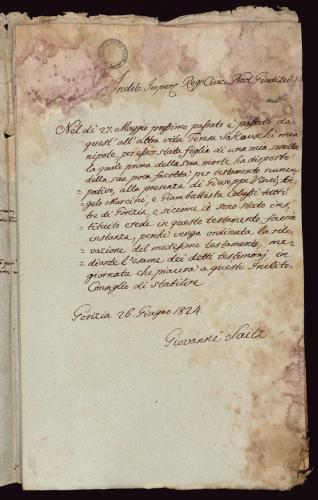 Inclito Imper. Reg. Civico Prov. Giudizio
Nel dì 27. Maggio prossimo passato è passata da
quest' all' altra vita Teresa mia
nipote, per esser stata figlia di una mia sorella
la quale prima della sua morte ha disposto
della sua poca facoltà per testamento nuncu-
= pativo, alla presenza di Giuseppe An-
= gelo Marcini, e Giambattista tutti
tre di Gorizia, e siccome io sono stato ins-
= tituito erede in questo testamento, faccio
instanza, perchè venga ordinata la rile-
= vazione del medesimo testamento, me-
= diante l'esame dei detti testimonj in
giornata che piacerà a questo Inclito
Consiglio di stabilire.
Gorizia 26. Giugno 1824.
Giovanni